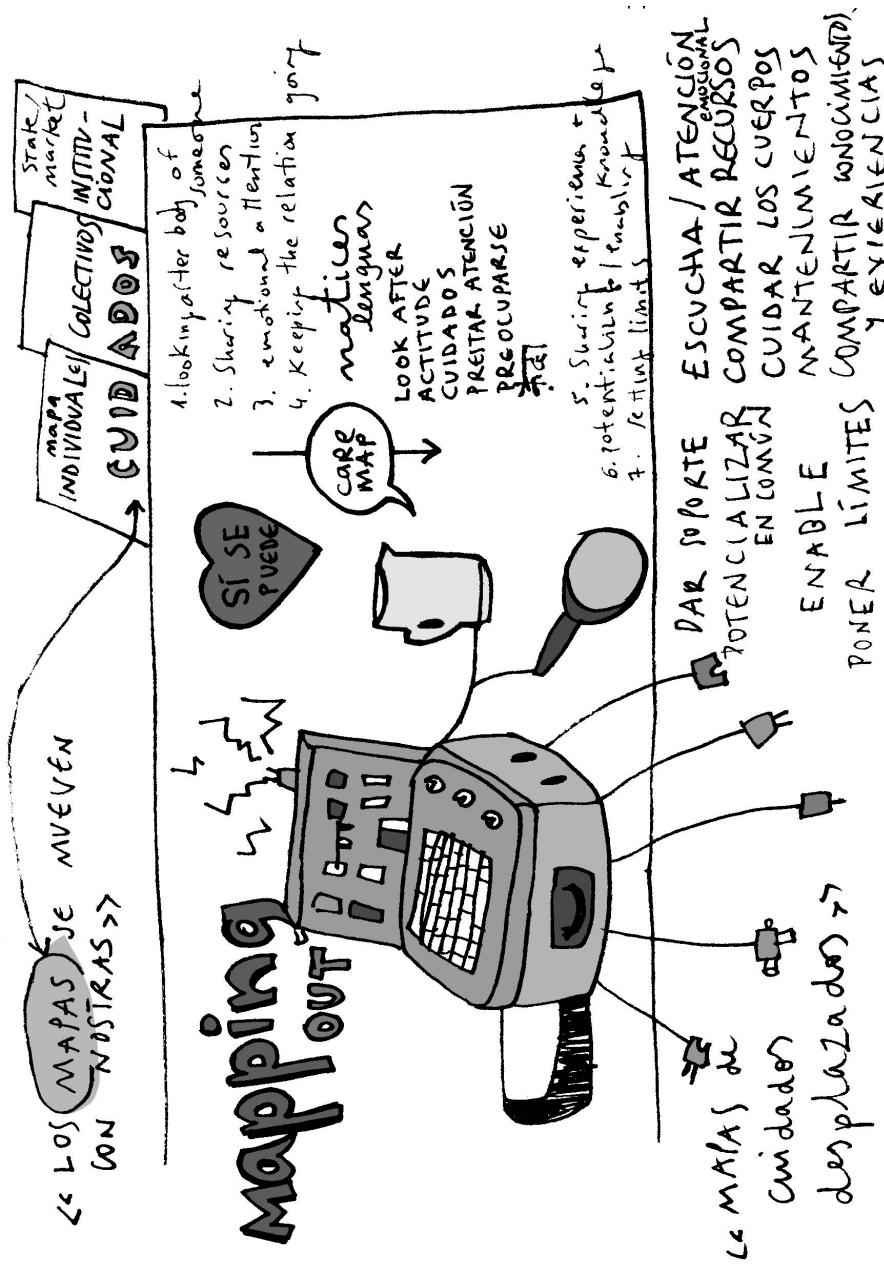 << LOS MAPAS SE MUEVEN
CON NOSTRAS >>
mapa
INDIVIDUALE
COLECTIVOS
State/
market
INSTITU-
CIONAL
CUIDADOS
Mapping
OUT
SÍ SE
PUEDE
CARE
MAP
1. looking after body of
someone
2. Sharing resources
3. emotional attention
4. Keeping the relation going
matices
lenguas
LOOK AFTER
ACTITUDE
CUIDADOS
PREITAR ATENCIÓN
PREOCUPARSE
5. Sharing experience + knowledge
6. potentializing / enabling
7. setting limits
<< MAPAS de
cuidados
desplazados >>
DAR SOPORTE
POTENCIALIZAR
EN COMÚN
ENABLE
PONER LÍMITES
ESCUCHA / ATENCIÓN
EMOCIONAL
COMPARTIR RECURSOS
CUIDAR LOS CUERPOS
MANTENIMIENTOS
COMPARTIR CONOCIMIENTOS
Y EXIERIENCIAS